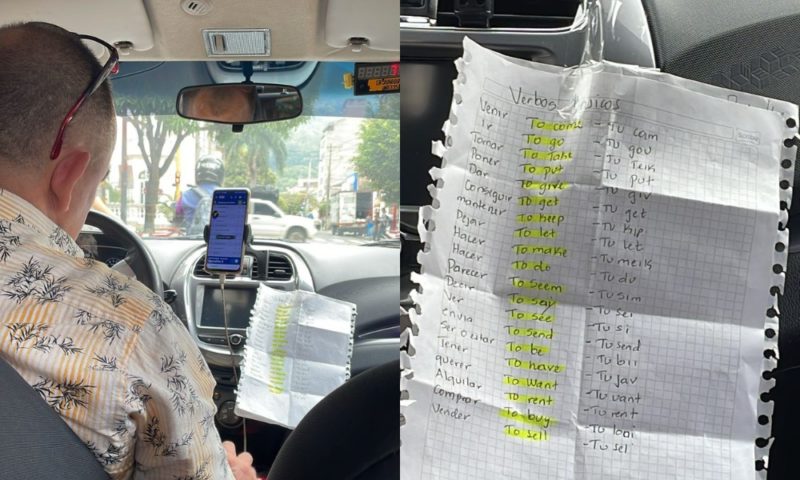 Verbos básicos
Venir To come - Tu cam
Ir To go - Tu gou
Tomar To take - Tu Teik
Poner To put - Tu put
Dar To give - Tu giv
Conseguir To get - Tu get
mantener To keep - Tu kip
Dejar To let - Tu let
Hacer To make - Tu meik
Hacer To do - Tu du
Parecer To seem - Tu sim
Decir To say - Tu sei
Ver To see - Tu si
envia To send - Tu send
Ser o estar To be - Tu bii
Tener To have - Tu jav
querer To want - Tu uant
Alquilar To rent - Tu rent
Comprar To buy - Tu
Vender To sell - Tu sel